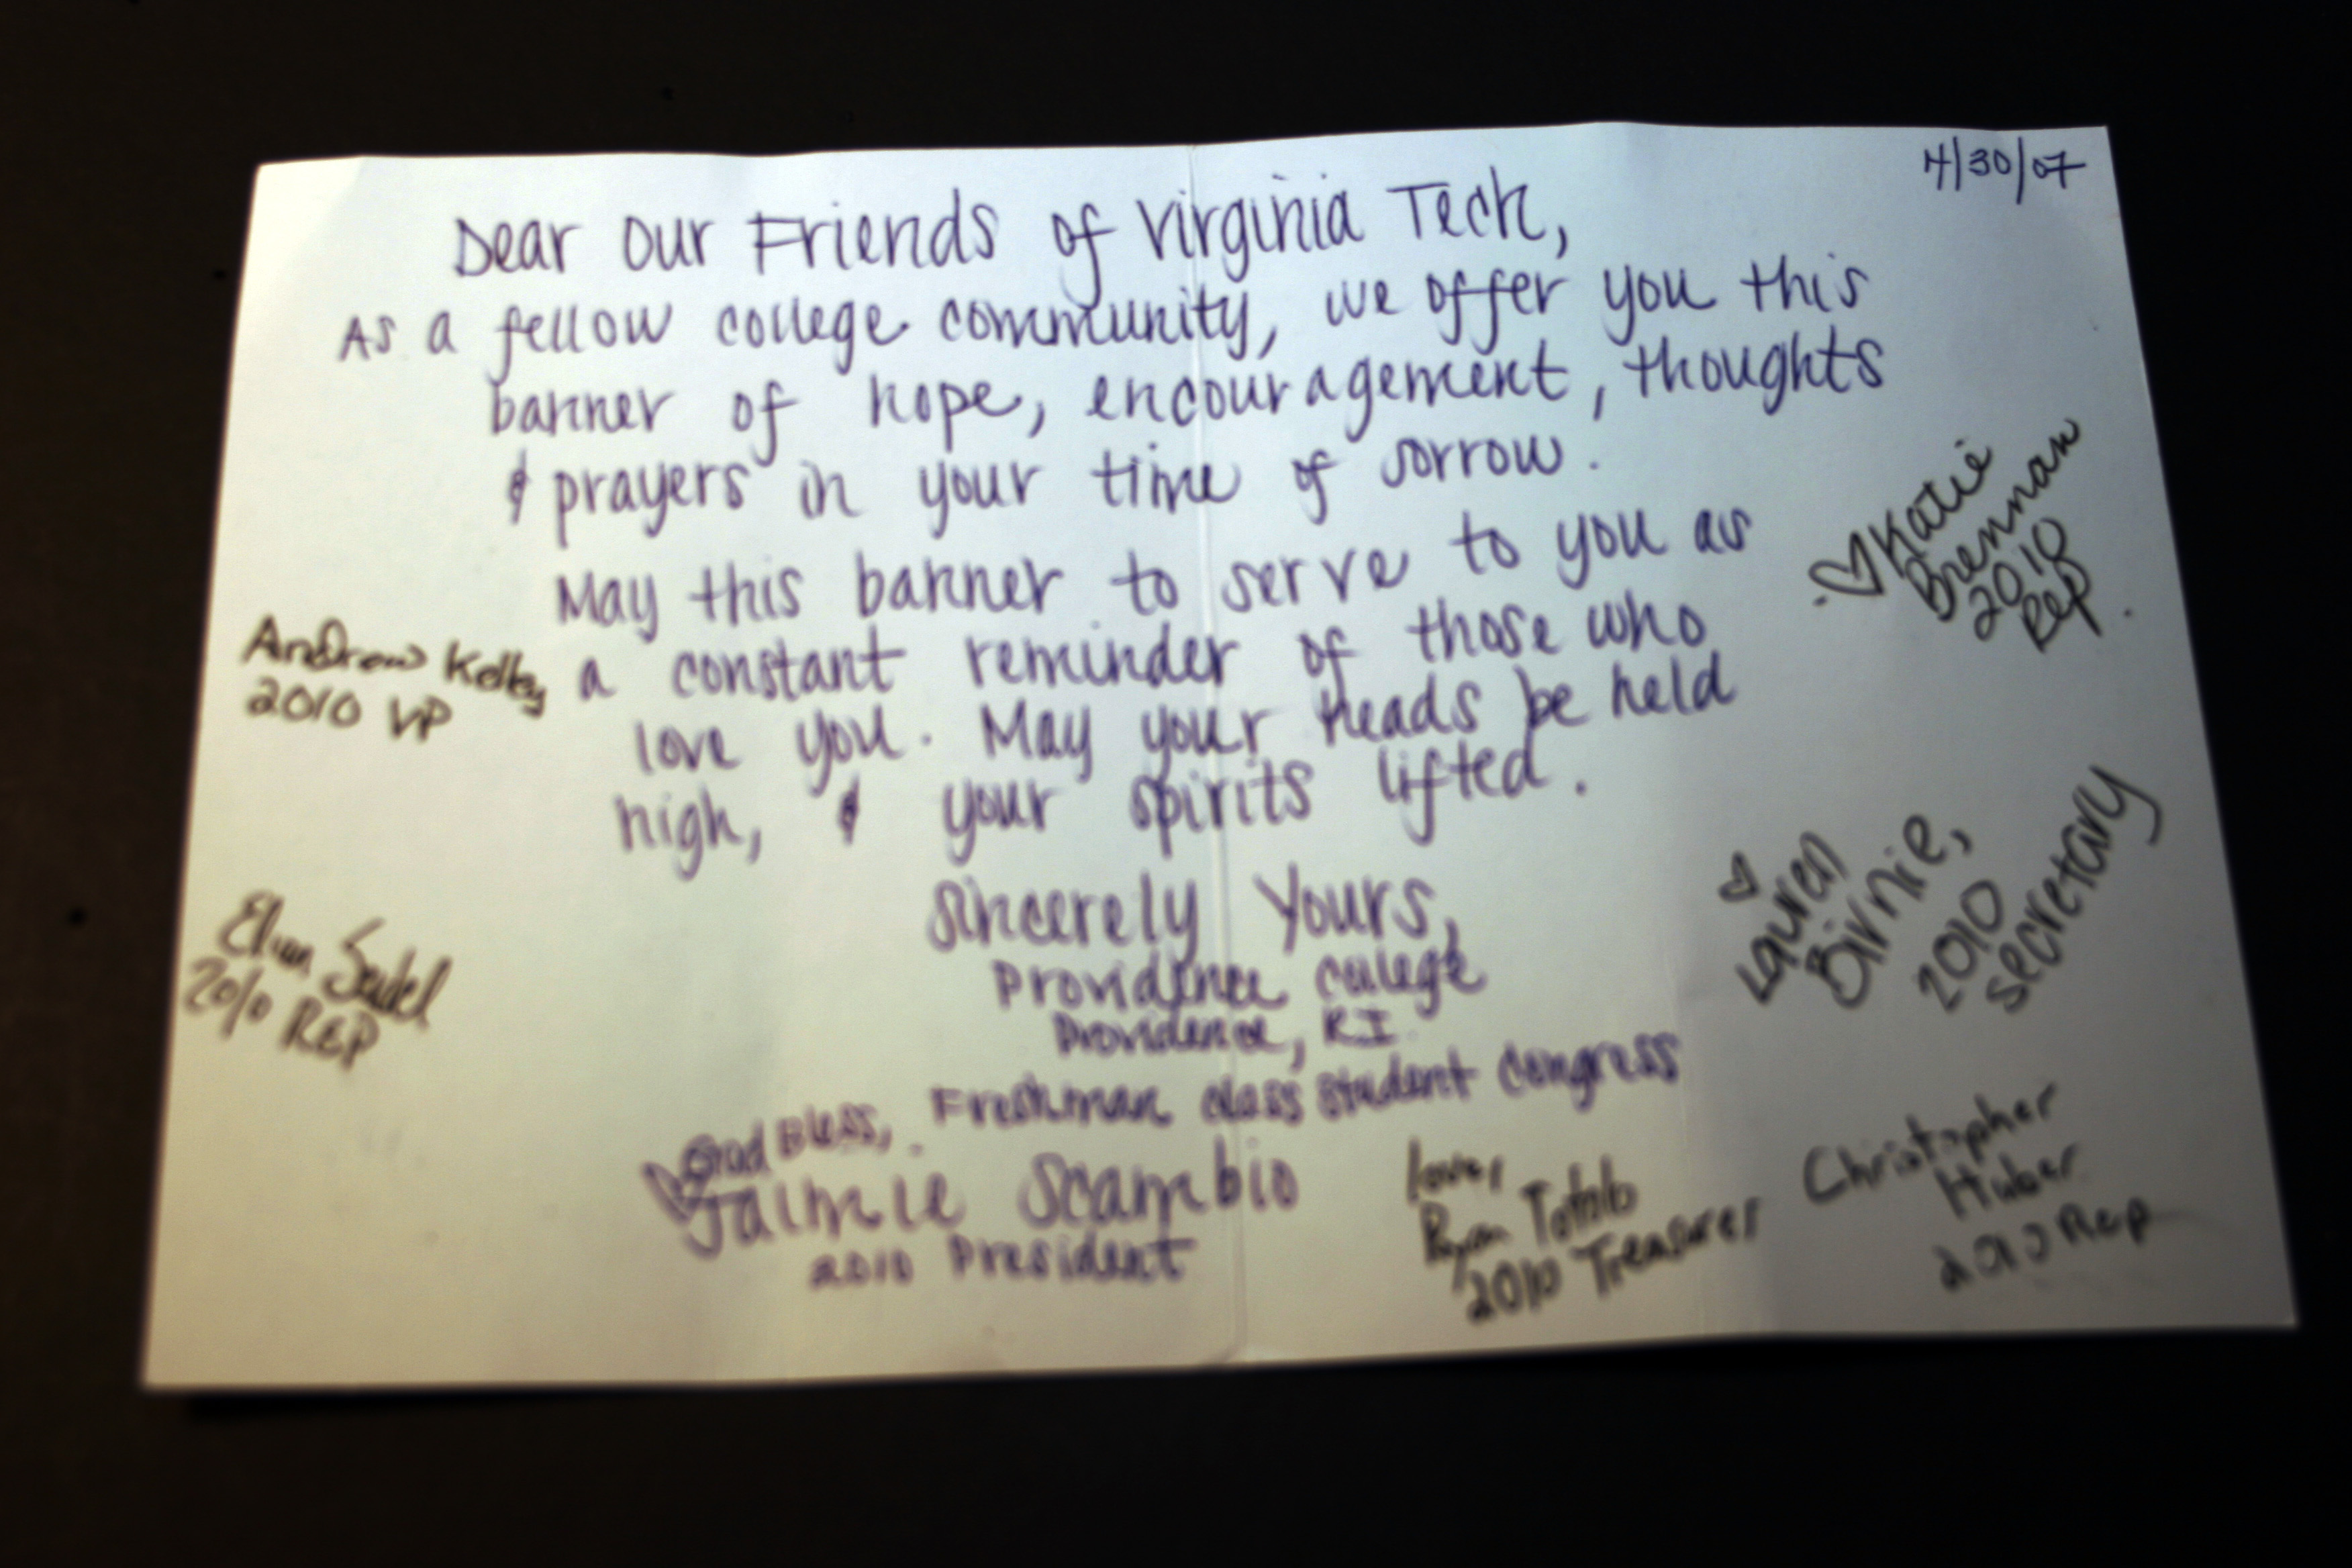 4/30/07
Dear Our Friends of Virginia Tech,
As a fellow college community, we offer you this
banner of hope, encouragement, thoughts
& prayers in your time of sorrow.
May this banner to serve to you as
a constant reminder of those who
love you. May your heads be held
high, & your spirits lifted.
Sincerely Yours,
Providence College
Providence, RI
Freshman class student congress
God Bless,
Jaimie Scambio
2010 President
Andrew Kelley
2010 VP
2010 REP
Katie
Brennan
2010
Rep
Lauren
Birnie,
2010
secretary
Ryan
2010 Treasurer
Christopher
Huber
2010 Rep